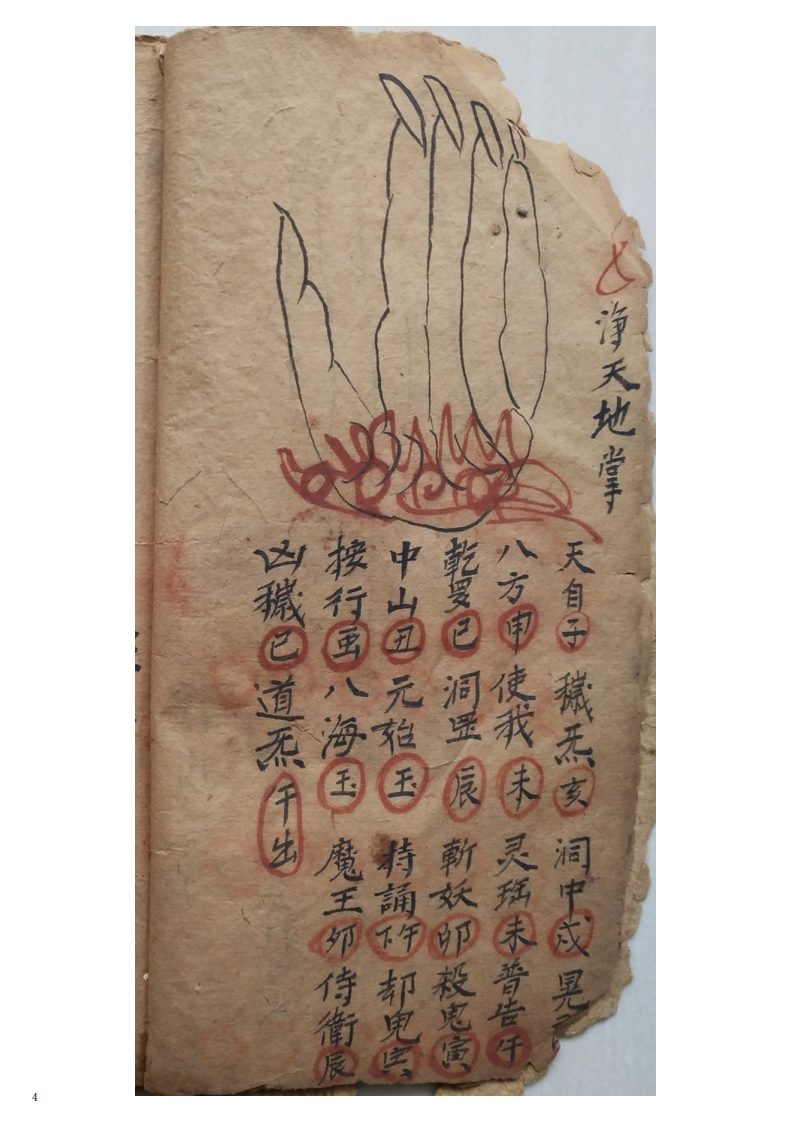 淨天地掌
天自子 穢炁亥 洞中戍 晃
八方申 使我未 灵珤未 普告午
乾罗巳 洞罡辰 斬妖卯 殺鬼寅
中山丑 元始玉 持誦午 却鬼寅
按行 八海玉 魔王卯 侍衛辰
凶穢巳 道炁午出
4